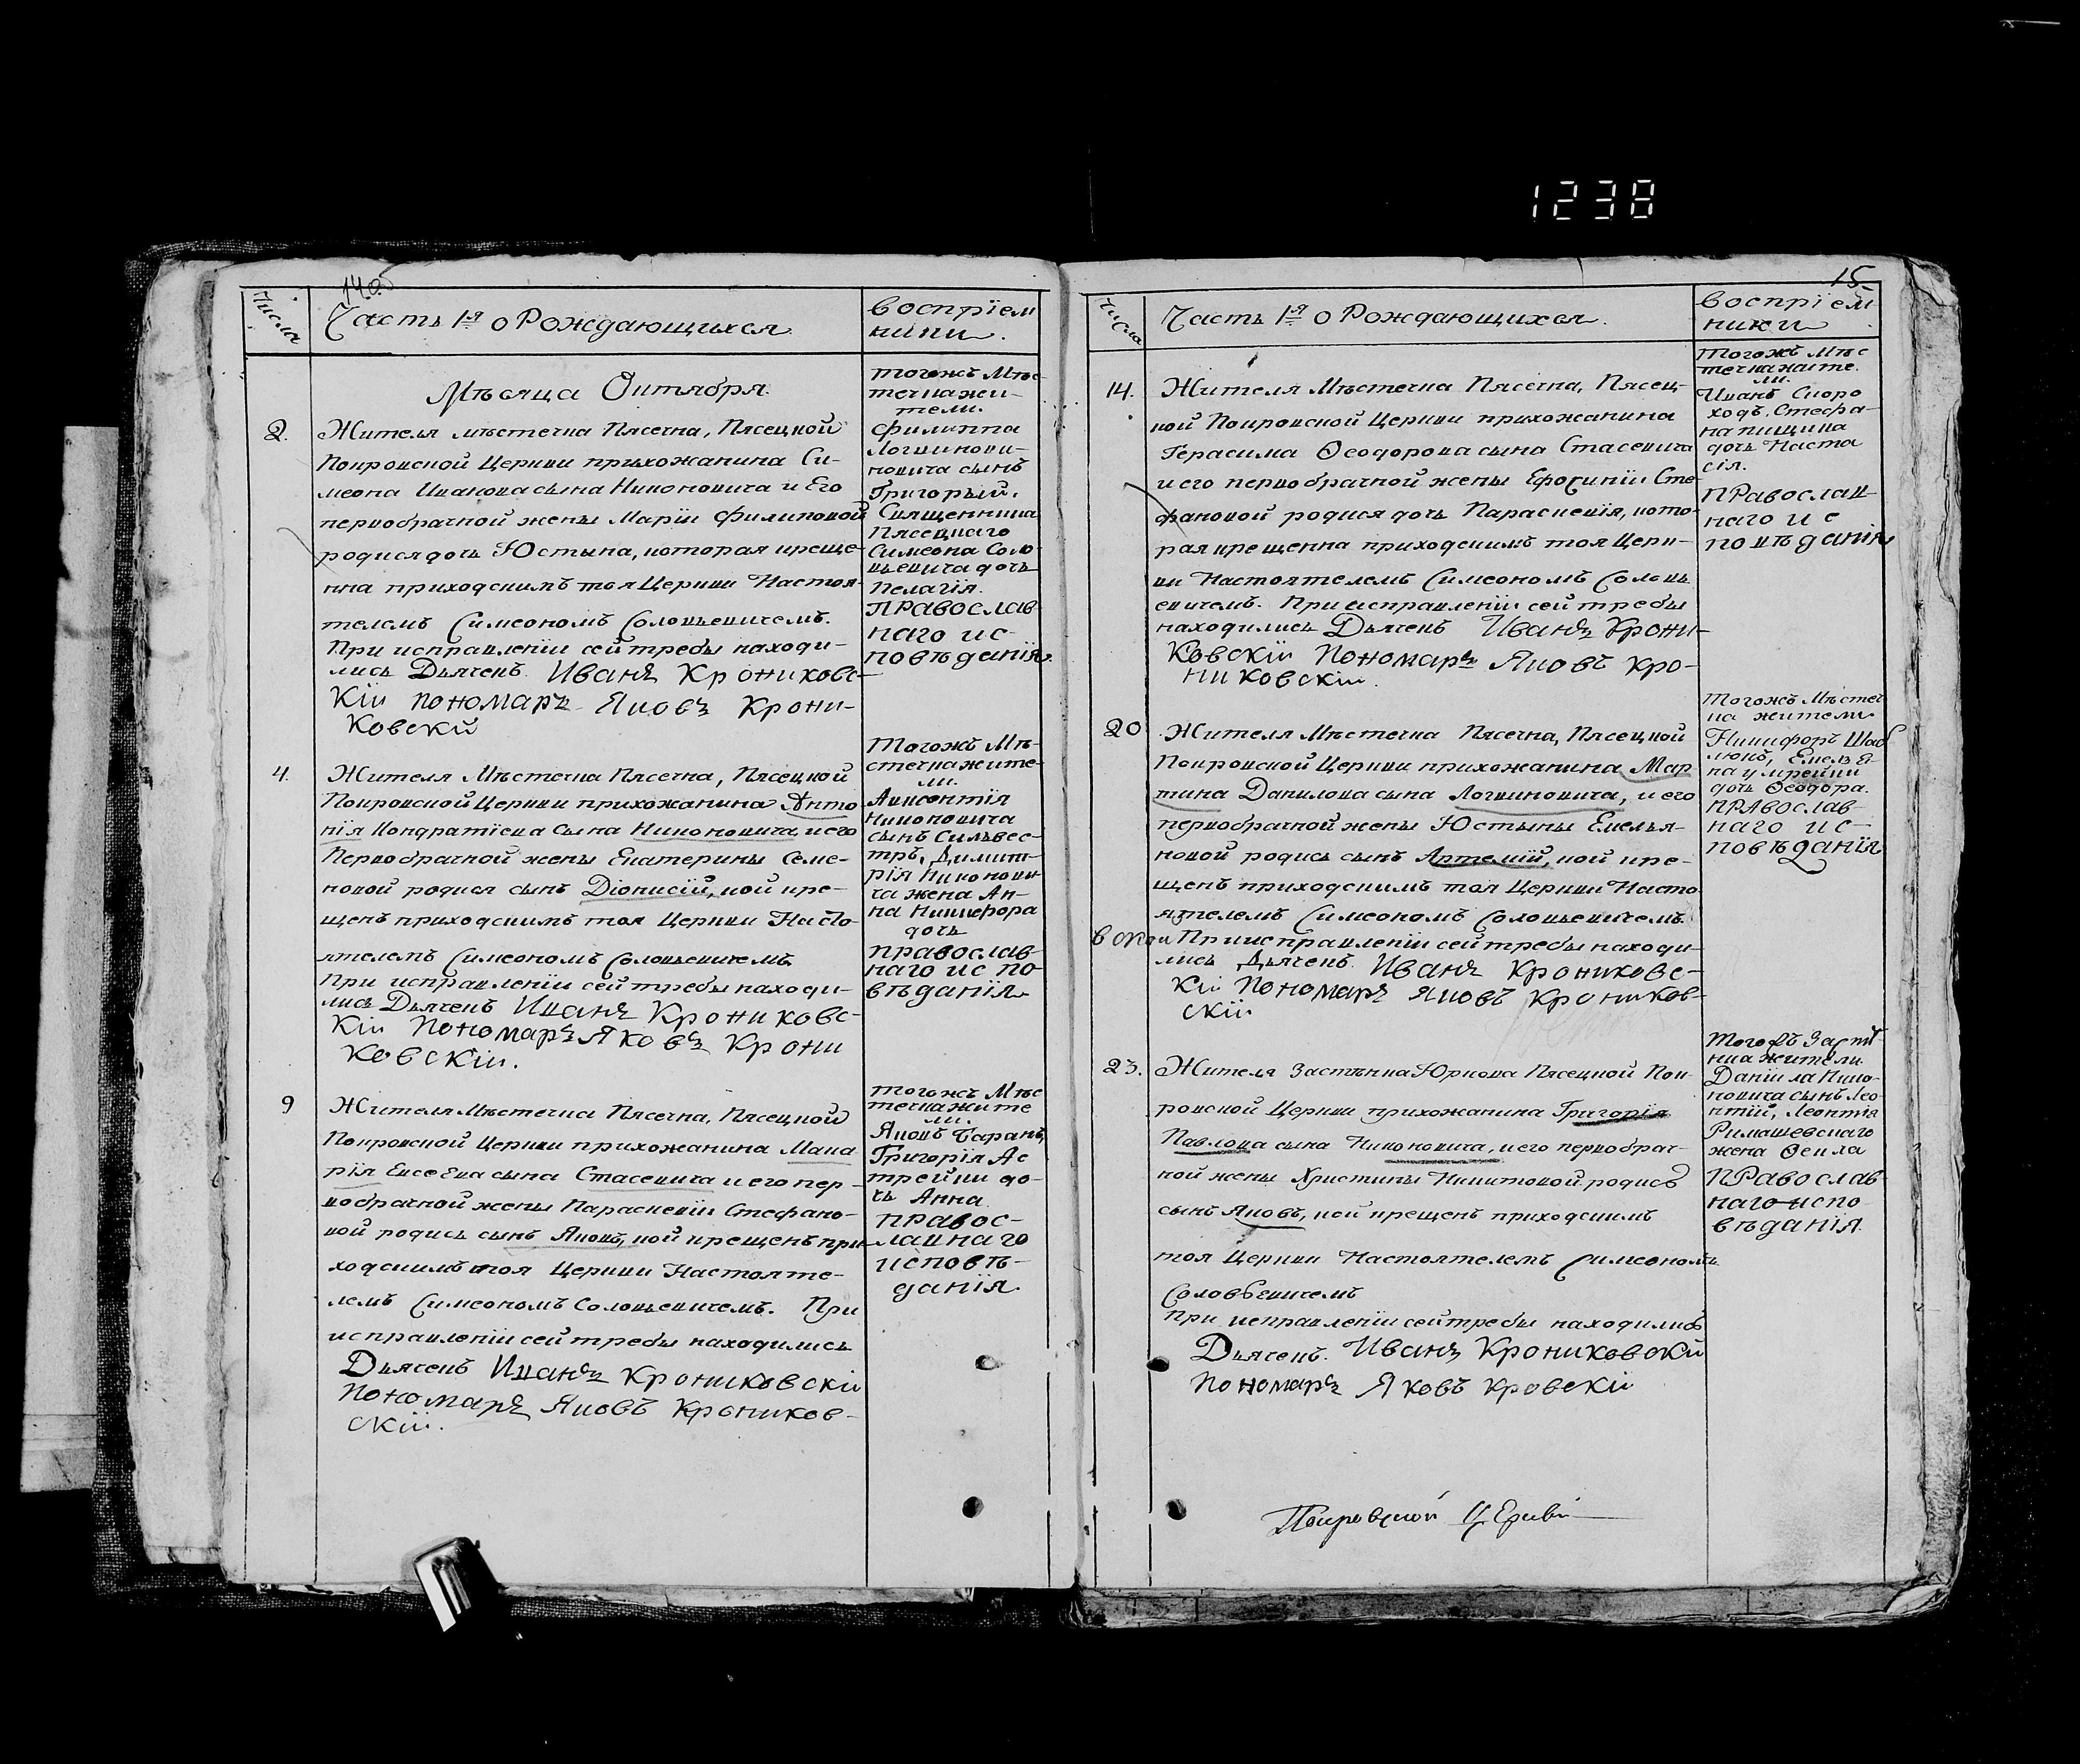 1238
14.об
Числа
Часть 1я о Рождающихся.
восприем
ники.
Мѣсяца Октября.
2.
Жителя мѣстечка Пясечна, Пясецкой
Покровской Церкви прихожанина Си-
меона Иванова сына Никоновича и Его
первобрачной жены Маріи Филиповой
родися дочь Юстына, которая креще-
нна приходскимъ тоя Церкви Настоя-
телемъ Симеономъ Соловьевичемъ.
При исправленіи сей требы находи-
лись Дьячекъ Иванъ Крониковс-
кіи пономаръ Яковъ Крони-
ковскй
тогожъ Мѣс-
течка жи-
тели.
Филиппа
Логвинови-
новича сынъ
Григорый.
Священника
Пясецкаго
Симеона Соло-
вьевича дочь
Пелагія.
Православ
наго ис-
повѣданія.
4.
Жителя Мѣстечка Пясечна, Пясецкой
Покровской Церкви прихожанина Анто
нія Кондратіева сына Никоновича, и его
Первобрачной жены Екатерины Семе-
новой родися сынъ Діонисій, кой кре-
щенъ приходскимъ тоя Церкви Насто-
ятелемъ Симеономъ Соловьевичемъ.
При исправленіи сей требы находи-
лись Дьячекъ Иванъ Крониковс-
кіи Пономаръ Яковъ Крони
ковскіи.
Тогожъ Мѣ-
стечка жите-
ли.
Авксентія
Никоновича
сынъ Сильвес-
тръ, Димит-
рія Никонови-
ча жена Ан-
на Никифора
дочь
православ-
наго ис по-
вѣданія
9
Жителя Мѣстечка Пясечна, Пясецкой
Покровской Церкви прихожанина Мака
рія Евсеева сына Стасевича и его пер-
вобрачной жены Параскевіи Стефано-
вой родись сынъ Яковъ, кой крещенъ при-
ходскимъ тоя Церкви Настояте-
лемъ Симеономъ Соловьевичемъ. При
исправленіи сей требы находились
Дьячекъ Иванъ Крониковскіи
пономаръ Яковъ Кроников-
скіи.
тогожъ Мѣс
течка жите
ли.
Яковъ Баранъ,
Григорія Ас
трейки до-
чь Анна.
правос-
лавнаго
исповѣ-
данія.
15
Числа
Часть 1я о Рождающихся.
восприем
ники
14.
Жителя Мѣстечка Пясечна, Пясец-
кой Покровской Церкви прихожанина
Герасима Ѳеодорова сына Стасевича
и его первобрачной жены Ефросиніи Сте-
фановой родися дочь Параскевія, кото-
рая крещенна приходскимъ тоя Церк-
ви Настоятелемъ Симеономъ Соловь
евичемъ. При исправленіи сей требы
находились Дьячекъ Иванъ Крони-
ковскіи Пономаръ Яковъ Кро-
никовскіи.
тогожъ Мѣс
течка жите.
ли.
Иванъ Скоро
ходъ, Стефа-
на пищика
дочь Наста
сія.
Православ
наго ис
повѣданія
20
Жителя Мѣстечка Пясечна, Пясецкой
Покровской Церкви прихожанина Мар
тина Данилова сына Логвиновича, и его
первобрачной жены Юстыны Емелья-
новой родись сынъ Артемій, кой кре-
щенъ приходскимъ тоя Церкви Насто
ятелемъ Симеономъ Соловьевичемъ.
При исправленіи сей требы находи-
лись Дьячекъ Иванъ Крониковс-
кіи Пономаръ Яковъ Кроников-
скіи
Тогожъ Мѣстеч
ка жители
Никифоръ
дочь Ѳеодора.
православ-
наго ис-
повѣданія
23.
Жителя Застѣнка Юркова Пясецкой Пок-
ровской Церкви прихожанина Григорія
Павлова сына Никоновича, и его первобрач-
ной жены Христины Никитовой родись
сынъ Яковъ, кой крещенъ приходскимъ
тоя Церкви Настоятелемъ Симеономъ
Соловьевичемъ
При исправленіи сей требы находились
Дьячекъ. Иванъ Крониковскй
Пономаръ Яковъ Кровскіи
нка жители
Даніила Нико-
новича сынъ Лео-
нтій, Леонтія
Римашевскаго
жена Ѳекла
Православ
наго испо
вѣданія.
Покровской Церкви